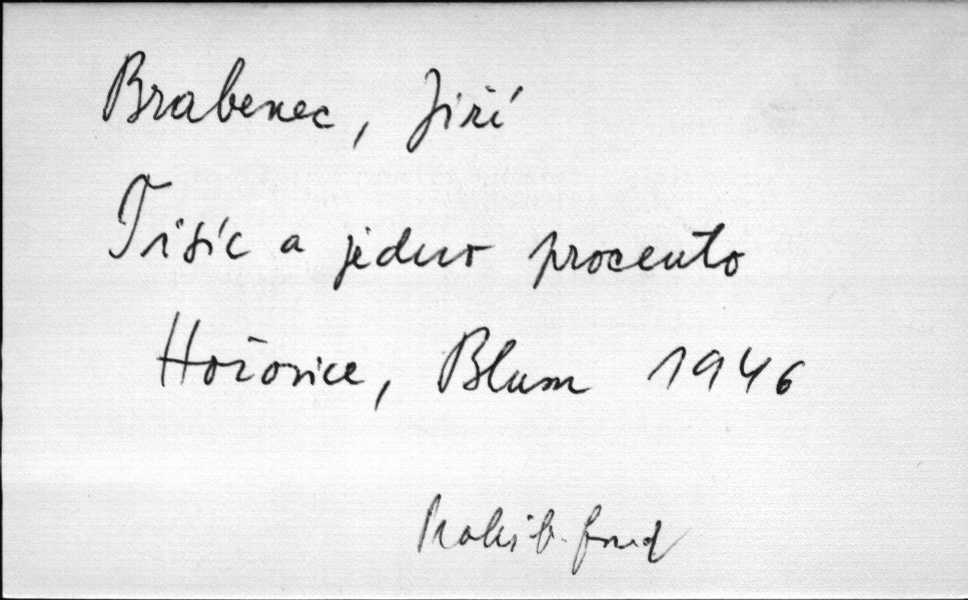 Brabenec, Jiří
Tisíc a jedno procento
Hořovice, Blum 1946
fond